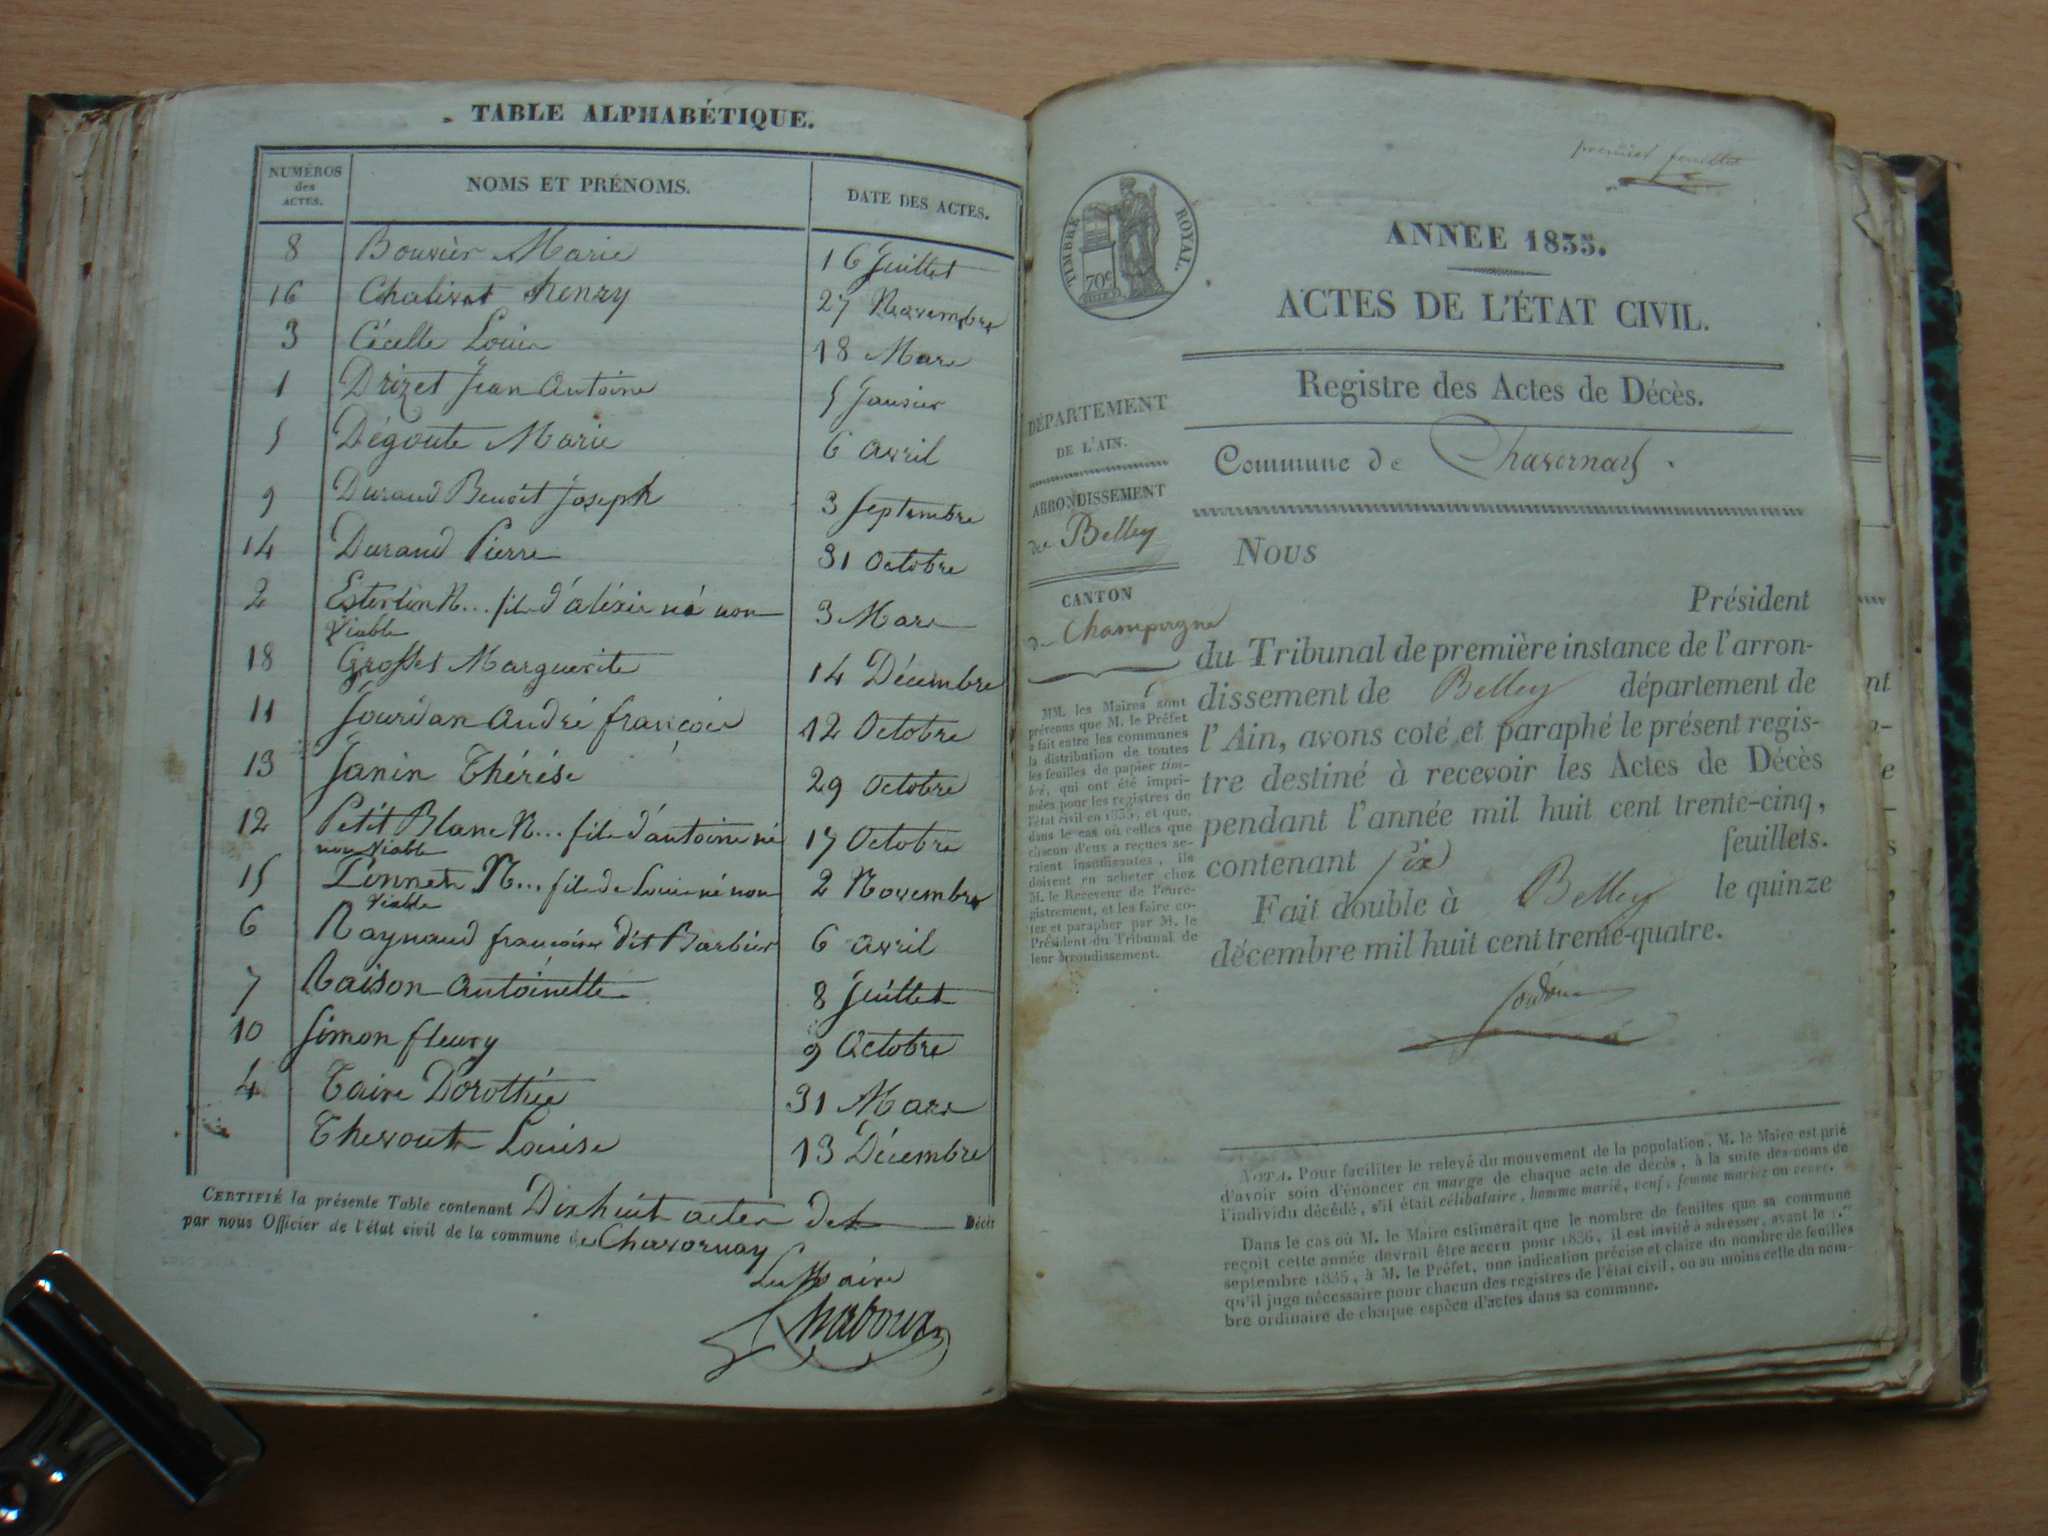 TABLE ALPHABÉTIQUE.
NUMÉROS des ACTES. NOMS ET PRÉNOMS. DATE DES ACTES.
8 Bouvier Marie 16 Juillet
16 Chalivat henry 27 Novembre
3 Cécelle Louis 18 Mars
1 Drizet Jean Antoine 5 Janvier
5 Dégoute Marie 6 avril
9 Durand Benoît Joseph 3 Septembre
14 Durand Pierre 31 Octobre
2 Esterlin N... fils d'alexis né non 3 Mars
viable
18 Grosset Marguerite 14 Décembre
11 Jourdan andré françois 12 Octobre
13 Janin Thérèse 29 Octobre
12 Petit Blanc N... fils d'antoine né 17 Octobre
non viable
15 Ponnet N... fils de Louis né non 2 Novembre
viable
6 Raynaud françoise dit Barbier 6 avril
7 Raison antoinette 8 Juillet
10 Simon fleury 9 Octobre
4 Taire Dorothée 31 Mars
Thevout Louise 13 Décembre
CERTIFIÉ la présente Table contenant Dix huit actes de Décès
par nous Officier de l'état civil de la commune de Chavornay
Le Maire
Chaboux
premier feuillet
TIMBRE ROYAL.
70c
ANNEE 1835.
ACTES DE L'ÉTAT CIVIL.
Registre des Actes de Décès.
Commune de Chavornay.
DÉPARTEMENT
DE L'AIN.
ARRONDISSEMENT
de Belley
CANTON
de Champagne
MM. les Maires sont
prévenus que M. le Préfet
a fait entre les communes
la distribution de toutes
les feuilles de papier tim-
bré, qui ont été impri-
mées pour les registres de
l'état civil en 1835, et que,
dans le cas où celles que
chacun d'eux a reçues se-
raient insuffisantes, ils
doivent en acheter chez
M. le Receveur de l'enre-
gistrement, et les faire co-
ter et parapher par M. le
Président du Tribunal de
leur arrondissement.
Nous
Président
du Tribunal de première instance de l'arron-
dissement de Belley département de
l'Ain, avons coté et paraphé le présent regis-
tre destiné à recevoir les Actes de Décès
pendant l'année mil huit cent trente-cinq,
contenant six feuillets.
Fait double à Belley le quinze
décembre mil huit cent trente-quatre.
NOTA. Pour faciliter le relevé du mouvement de la population, M. le Maire est prié
d'avoir soin d'énoncer en marge de chaque acte de décès, à la suite des noms de
l'individu décédé, s'il était célibataire, homme marié, veuf, femme mariée ou veuve.
Dans le cas où M. le Maire estimerait que le nombre de feuilles que sa commune
reçoit cette année devrait être accru pour 1836, il est invité à adresser, avant le 1.er
septembre 1835, à M. le Préfet, une indication précise et claire du nombre de feuilles
qu'il juge nécessaire pour chacun des registres de l'état civil, ou au moins celle du nom-
bre ordinaire de chaque espèce d'actes dans sa commune.